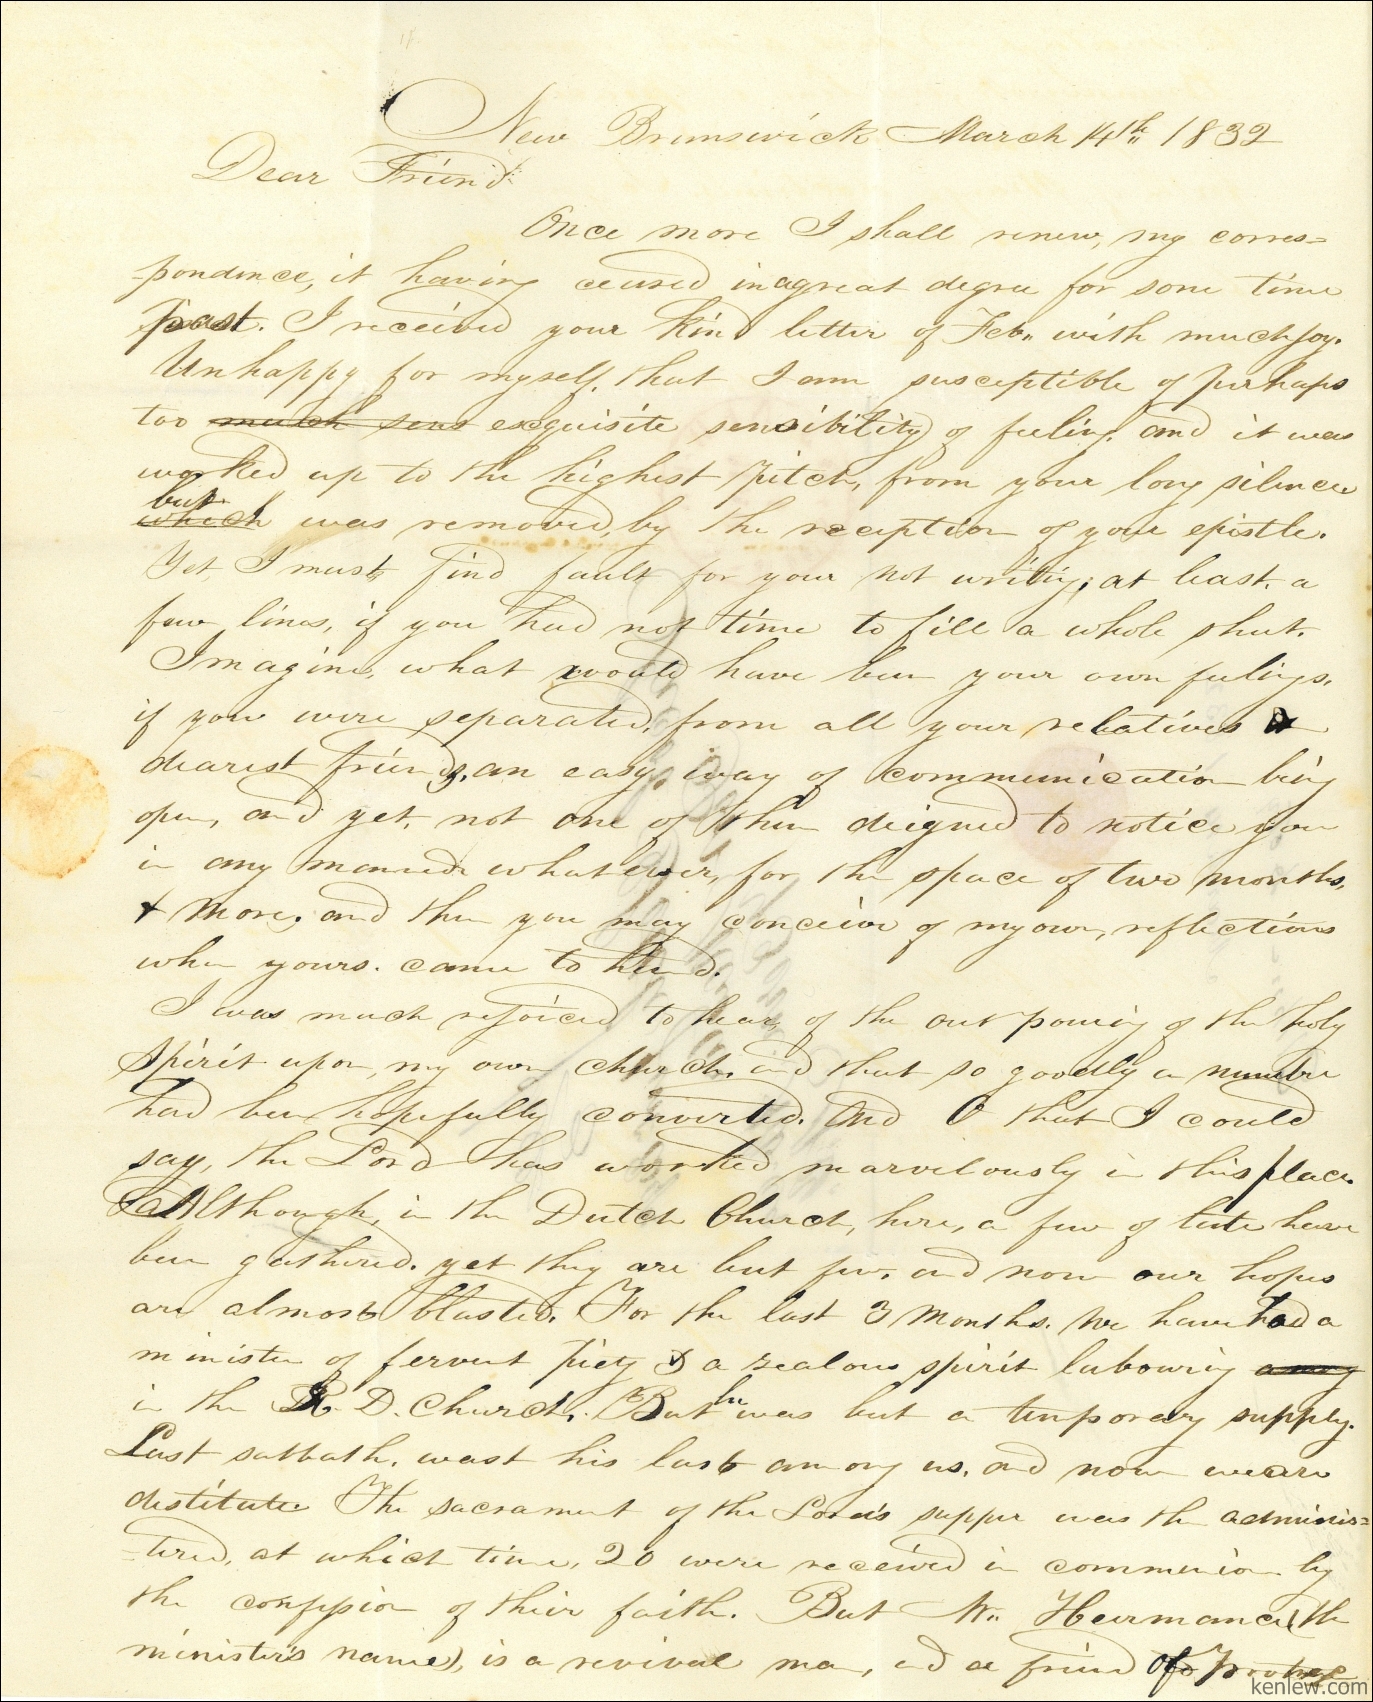 New Brunswick March 14th 1832
Dear Friend
Once more I shall renew, my corres=
=pondence, it having ceased in a great degree for some time
past. I received your kind letter of Feb. with much joy.
Unhappy for myself, that I am susceptible of perhaps
too much sens exquisite sensibility of feeling, and it was
worked up to the highest pitch, from your long silence
but
which was removed, by the reception of your epistle.
Yet, I must, find fault for your not writing, at least. a
few lines, if you had not time to fill a whole sheet.
Imagine, what would have been your own feelings,
if you were separated, from all your relatives &
dearest friends, an easy, way of communication being
open, and yet, not one of them deigned to notice you
in any manner whatever, for the space of two months,
& more, and then you may conceive of my own, reflections
when yours. came to hand.
I was much rejoiced to hear, of the out pouring of the holy
Spirit upon, my own church, and that so goodly a number
had been hopefully converted. And O that I could
say, the Lord has worked marvelously in this place.
Although, in the Dutch Church, here, a few of late have
been gathered. yet they are but few. and now our hopes
are almost blasted. For the last 3 months. we have had a
minister of fervent piety & a zealous spirit labouring among
in the R. D. Church. But he was but a temporary supply.
Last sabbath, wast his last among us, and now we are
destitute The sacrament of the Lord's supper was the adminis=
=tered, at which time, 20 were received in communion by
the confession of their faith. But Mr. Heermance (the
minister's name), is a revival man, and a friend of
kenlew.com